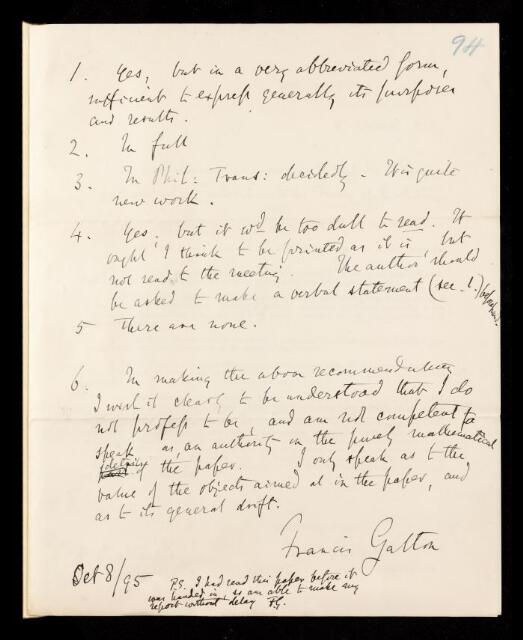 94
1. Yes, but in a very abbreviated form,
sufficient to express generally its purposes
and results.
2. In full
3. In Phil: Trans: decidedly. It is quite
new work.
4. Yes, but it wd be too dull to read. It
ought I think to be printed as it is, but
not read to the meeting. The author should
be asked to make a verbal statement (sec. 1.)
5 There are none.
6. In making the above recommendations
I wish it clearly to be understood that I do
not profess to be, and am not competent to
speak as, an authority on the purely mathematical
details of the paper. I only speak as to the
value of the objects aimed at in the paper, and
as to its general drift.
Francis Galton
Oct 8/95
P.S. I had read this paper before it
was handed in, so am able to make my
report without delay F.G.